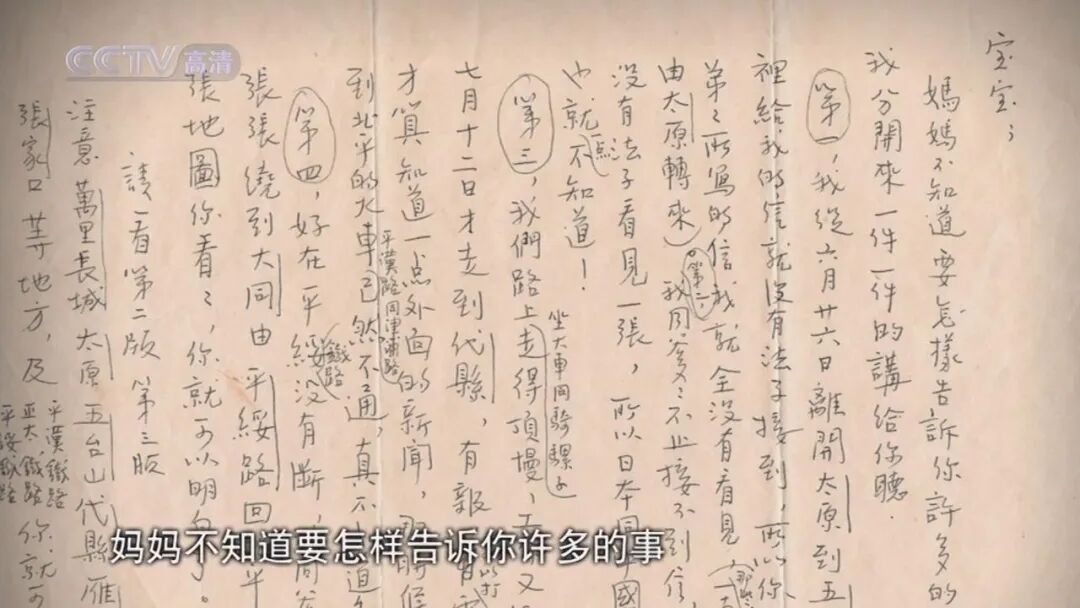 CCTV高清
宝宝；
媽媽不知道要怎樣告訴你許多的
我分開來一件一件的講給你聽.
第一，我從六月廿六日離開太原到五
裡給我的信就沒有法子接到，所以你
弟々所寫的信我就全沒有看見（那
由太原轉來）。第二，我同爹々不止接不到信，
没有法子看見一張，所以日本同國
也就一点不知道！
坐大車同騎騾子
第三，我們路上走得頂慢，又
七月十二日才走到代縣，有報
才算知道一点外面的新聞，那時候
平漢路同津浦路
到北平的火車已然不通，真不
第四，好在平綏鐵路没有斷，同爹
張張繞到大同由平綏路回平
張地圖你看々，你就可以明白了。
請看第二版 第三版
注意萬里長城 太原 五台山 代縣 雁
張家口等地方，及
平漢鐵路
正太鐵路
平綏鐵路
你就可
妈妈不知道要怎样告诉你许多的事